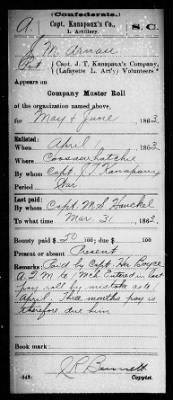 (Confederate.)
A. Capt. Kanapaux's Co., S.C.
L. Artillery.
J. M. Arnau
Pvt Capt. J. T. Kanapaux's Company,
(Lafayette L. Art'y) Volunteers.*
Appears on
Company Muster Roll
of the organization named above,
for May & June, 1863.
Enlisted:
When April 1, 1863.
Where Coosawhatchie
By whom Capt J T Kanapaux
Period War
Last paid:
By whom Capt. M. S. Hanckel
To what time Mar. 31, 1863.
Bounty paid $ 50/100; due $ /100
Present or absent Present
Remarks: Paid by Capt.
A. Q M to 1 Mch Entered in last
pay roll by mistake as to
April. Three months pay is
therefore due him
Book mark:
(642) Copyist.